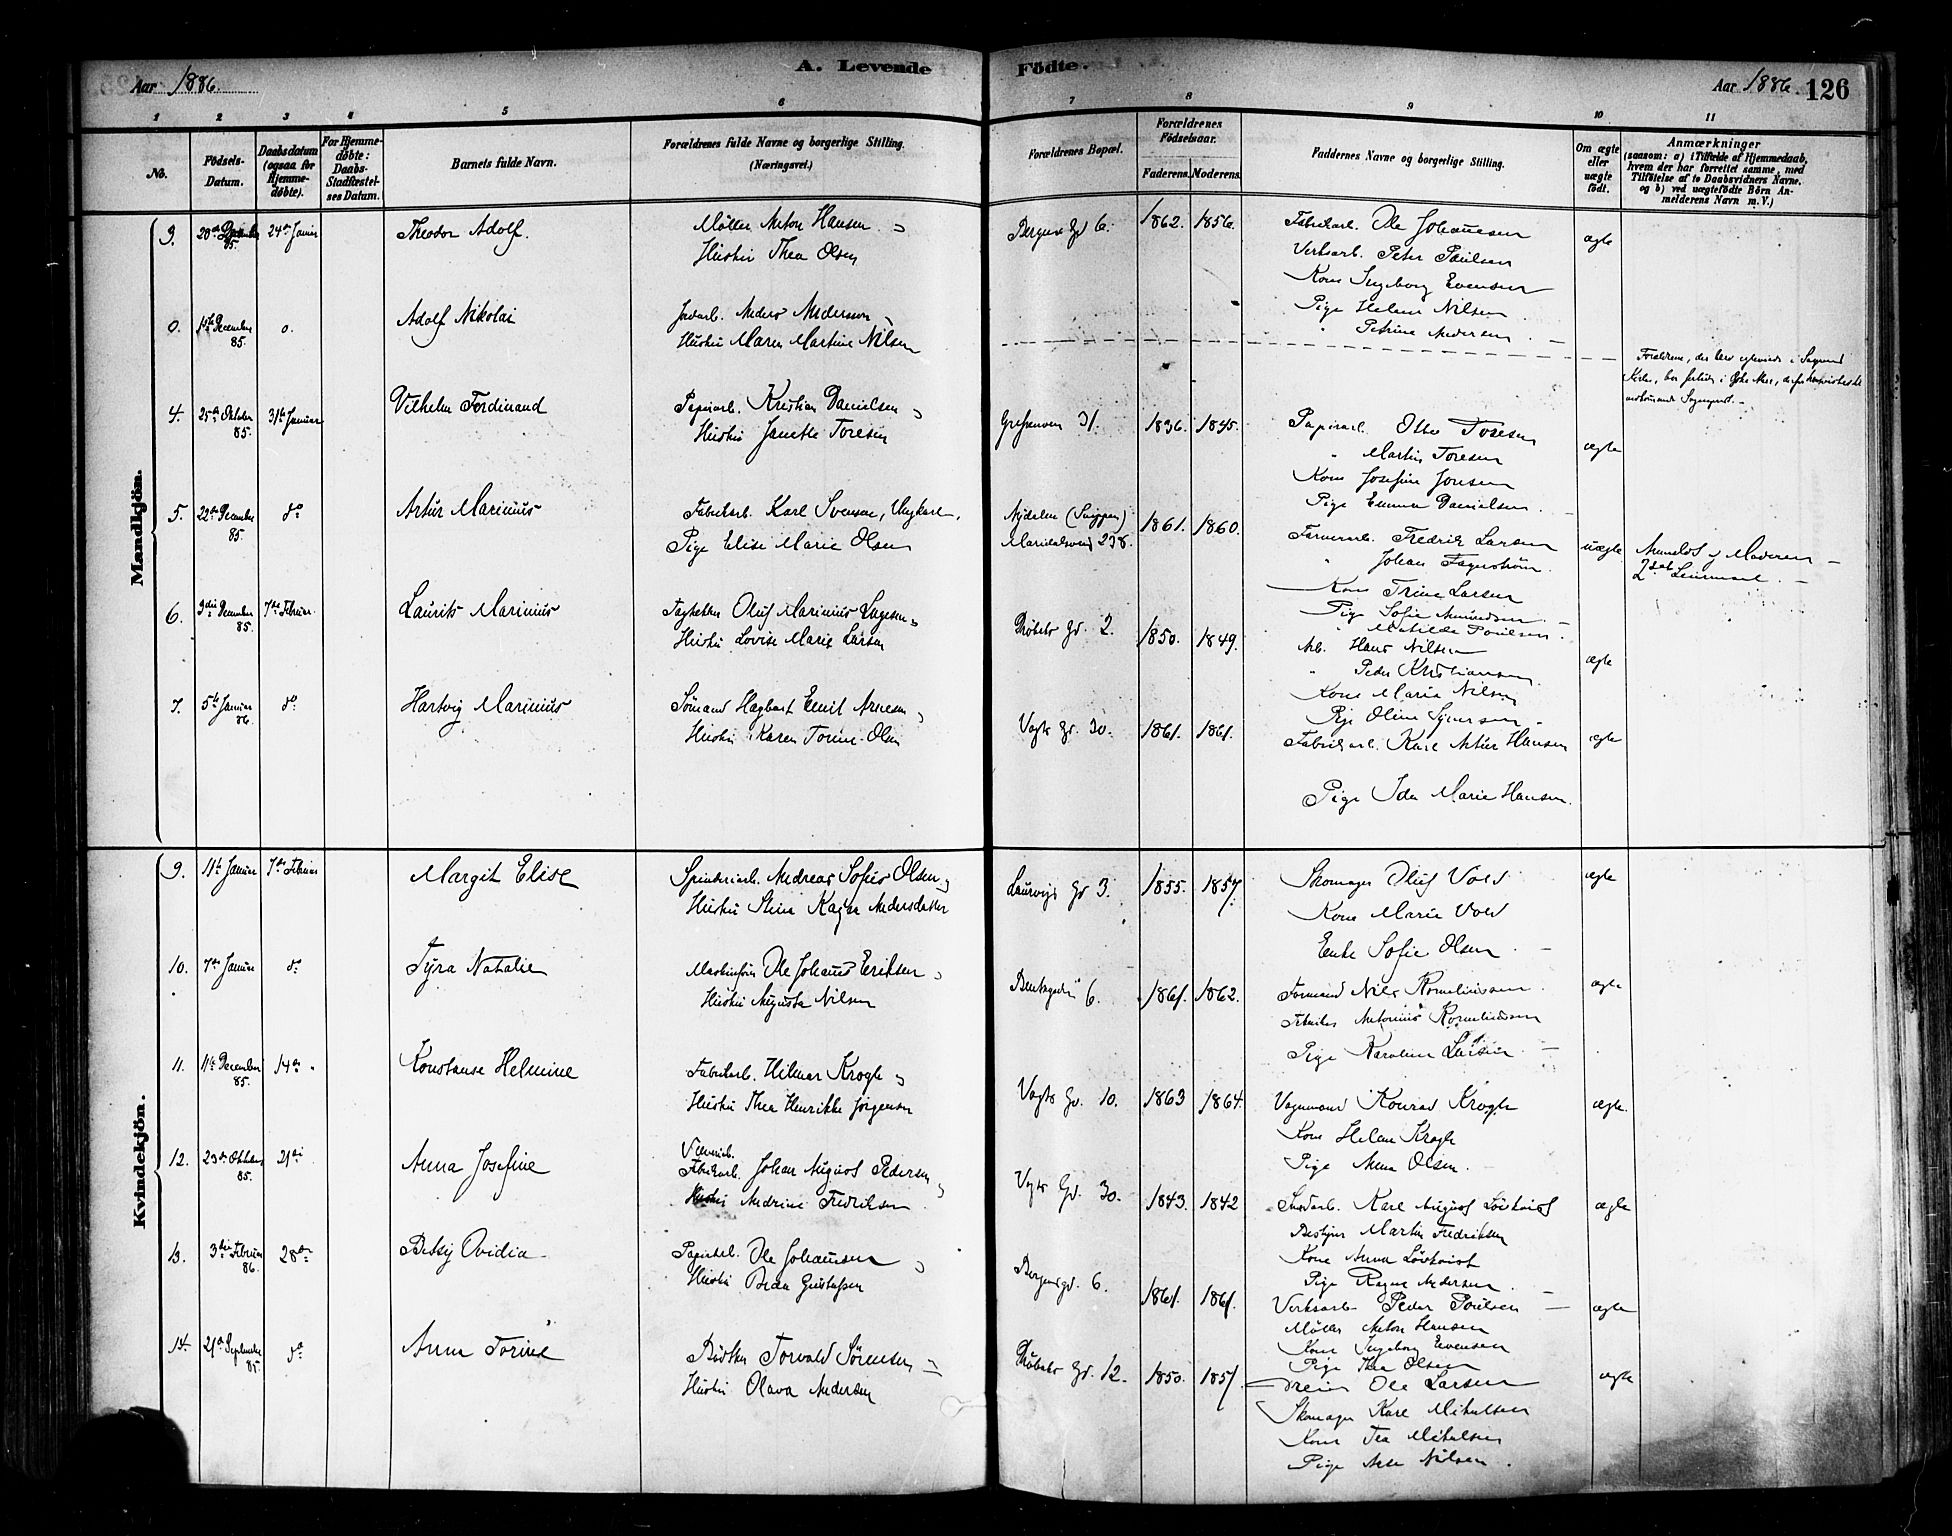 Aar 1886.
A. Levende Födte.
Aar 1886. 126
1 2 3 4 5 6 7 8 9 10 11
No.
Födsels-Datum.
Daabsdatum (ogsaa for Hjemmedöbte).
For Hjemmedøbte: Daabs-Stadfæstelses Datum.
Barnets fulde Navn.
Forældrenes fulde Navne og borgerlige Stilling. (Næringsvei.)
Forældrenes Bopæl.
Forældrenes Födselsaar.
Faderens. Moderens.
Faddernes Navne og borgerlige Stilling.
Om ægte eller uægte födt.
Anmærkninger
(saasom: a) i Tilfælde af Hjemmedaab, hvem der har forrettet samme, med Tilföielse af to Daabsvidners Navne, og b) ved uægtefödte Börn Anmelderens Navn m. V.)
Mandkjön.
3. 85. 24de Januar Theodor Adolf. Möller Anton Hansen
Hustru Thea Olsen
Bergens Gd 6. 1862. 1856.
Fabrikarb. Ole Johansen
Verksarb. Peter Paulsen
Kone Ingeborg Evensen
Pige Helene Nilsen
" Petrine Andersen. —
ægte
0. December 85. 0. Adolf Nikolai Anders Andersen
Hustru Maren Martine Nilsen
4. 25de Oktober 85. 31te Januar Vilhelm Ferdinand Papirarb. Kristian Danielsen
Hustru Janette Toresen
Grefsenveien 31. 1836. 1845.
Papirarb. Otto Toresen
" Martin Toresen
Kone Josefine Jonsen
Pige Emma Danielsen. —
ægte
5. 22de December 85. do Artur Marinius Fabrikarb. Karl Svensen, Ungkarl,
Pige Elise Marie Olsen
Nydalen
Maridalsveien 238. 1861. 1860.
Farverarb. Fredrik Larsen
" Johan Fagerström
Kone Trine Larsen
Pige Sofie Amundsen. —
" Matilde Poulsen.
uægte
Anmeldt af Moderen —
6. 3die December 85. 7de Februar. Laurits Marinius Oluf Marinius
Hustru Lovise Marie Larsen
Gd. 2. 1850. 1849.
Arb. Hans Nilsen
" Peder Kristiansen
Kone Maria Nilsen
Pige Oline Syversen —
ægte
7. 5te Januar 86. do Hartvig Marinius Sömand Hagbart Emil Arnesen
Hustru Karen Torine Olsen
Vogts Gd. 30. 1861. 1861.
Fabrikarb. Karl Artur Hansen
Pige Ida Marie Hansen.
ægte
Kvindekjön.
9. 11te Januar 7de Februar Margit Elise Spinderiarb. Andreas Sofus Olsen
Hustru Stina Kajsa Andersdatter
Laurvigs Gd 3. 1855. 1857.
Skomager Oluf Vold
Kone Marie Vold
Enke Sofie Olsen. —
ægte
10. 7de Januar do Tyra Natalie Ole Johannes Eriksen
Hustru Augusta Nilsen
6. 1861. 1862.
Formand Nils Korneliussen
Antonius Korneliussen
Pige Karoline Larsen. —
ægte
11. 11te December 85. 14de " Konstanse Helmine Fabrikarb. Hilmar Krogh
Hustru Thea Henrikke Jörgensen
Vogts Gd. 10. 1863 1864.
Vognmand Konrad Krogh
Kone Helene Krogh
Pige Anna Olsen. —
ægte.
12. 23de Oktober 85. 21de Anna Josefine
Fabrikarb. Johan August Pedersen
Hustru Andrine Fredriksen
Vogts Gd. 30. 1843. 1842
Karl August Lövkvist
Bestyrer Martin Fredriksen
Kone Anna Lövkvist
Pige Ragna Andersen. —
ægte
13. 3die Februar 86. 28de Betsy Ovidia Papirarb. Ole Johansen
Hustru Beda Gustafsen
Bergensgd. 6. 1861. 1861.
Verksarb. Peder Poulsen —
Möller Anton Hansen
Kone Ingeborg Evensen
Pige Thea Olsen
ægte
14. 21de September 85. do Anna Torine Bödker Torvald Sörensen
Hustru Olava Andersen
Gd. 12. 1850. 1857.
Ole Larsen
Skomager Karl Mikalsen
Kone Tea Mikalsen
Pige Nilsen.
ægte